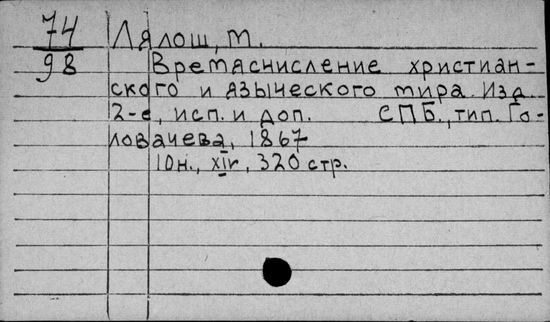 74
98
Лялош, М.
Времясчисление христиан-
ского и языческого мира. Изд.
2-е, исп. и доп. СПБ., тип. Го-
ловачева, 1867
10н., XIV, 320 стр.